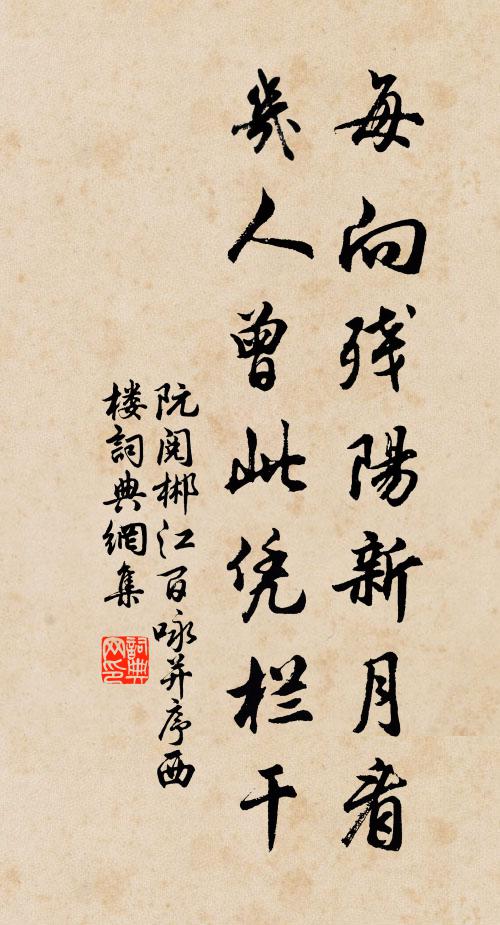 每向残陽新月看
幾人曾此凭栏干
阮阅郴江百咏并序西
楼詞典網集
詞典网印